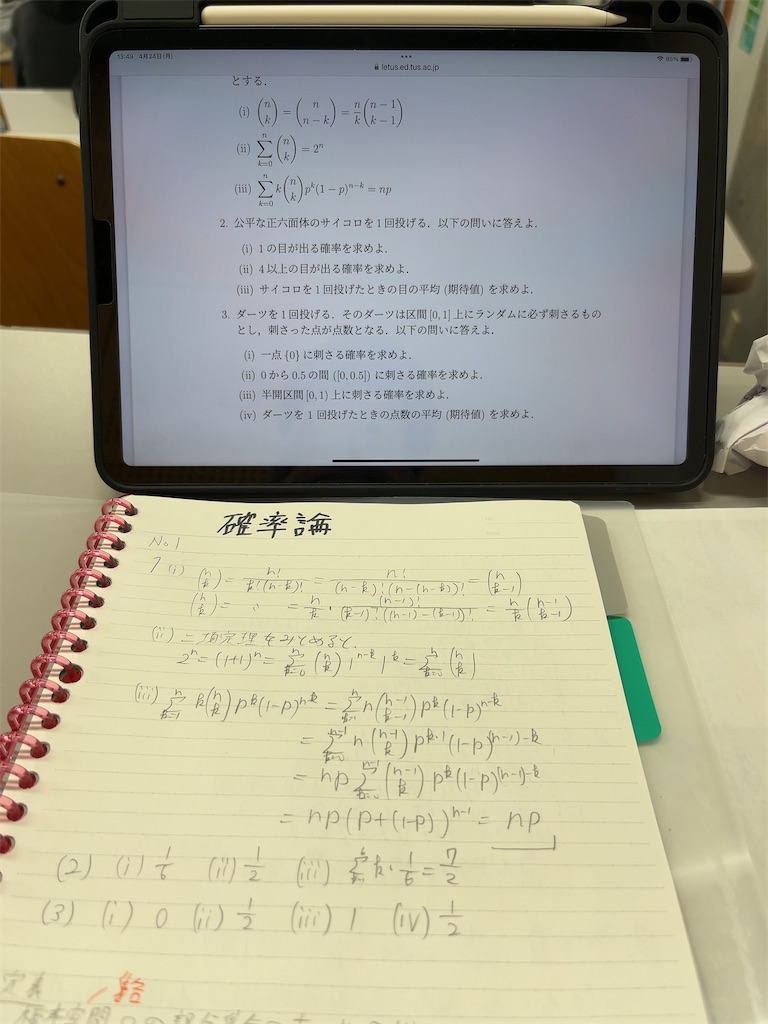 13:49 4月24日(月)
letus.ed.tus.ac.jp
85%
とする.
(i) \binom{n}{k} = \binom{n}{n-k} = \frac{n}{k}\binom{n-1}{k-1}
(ii) \sum_{k=0}^{n} \binom{n}{k} = 2^n
(iii) \sum_{k=0}^{n} k\binom{n}{k} p^k(1-p)^{n-k} = np
2. 公平な正六面体のサイコロを1回投げる. 以下の問いに答えよ.
(i) 1の目が出る確率を求めよ.
(ii) 4以上の目が出る確率を求めよ.
(iii) サイコロを1回投げたときの目の平均 (期待値) を求めよ.
3. ダーツを1回投げる. そのダーツは区間 [0,1] 上にランダムに必ず刺さるもの
とし, 刺さった点が点数となる. 以下の問いに答えよ.
(i) 一点 {0} に刺さる確率を求めよ.
(ii) 0から0.5の間 ([0,0.5]) に刺さる確率を求めよ.
(iii) 半開区間 [0,1) 上に刺さる確率を求めよ.
(iv) ダーツを1回投げたときの点数の平均 (期待値) を求めよ.
確率論
No.1
1 (i) \binom{n}{k} = \frac{n!}{k!(n-k)!} = \frac{n!}{(n-k)!(n-(n-k))!} = \binom{n}{n-k}
\binom{n}{k} = 〃 = \frac{n}{k}\cdot\frac{(n-1)!}{(k-1)!((n-1)-(k-1))!} = \frac{n}{k}\binom{n-1}{k-1}
(ii) 二項定理をみとめると.
2^n = (1+1)^n = \sum_{k=0}^{n} \binom{n}{k} 1^{n-k} 1^k = \sum_{k=0}^{n} \binom{n}{k}
(iii) \sum_{k=1}^{n} k\binom{n}{k} p^k(1-p)^{n-k} = \sum_{k=1}^{n} n\binom{n-1}{k-1} p^k(1-p)^{n-k}
= \sum_{k=0}^{n-1} n\binom{n-1}{k} p^{k+1}(1-p)^{(n-1)-k}
= np \sum_{k=0}^{n-1} \binom{n-1}{k} p^k(1-p)^{(n-1)-k}
= np(p+(1-p))^{n-1} = np
(2) (i) \frac{1}{6} (ii) \frac{1}{2} (iii) \sum_{k=1}^{6} k\cdot\frac{1}{6} = \frac{7}{2}
(3) (i) 0 (ii) \frac{1}{2} (iii) 1 (iv) \frac{1}{2}
定義